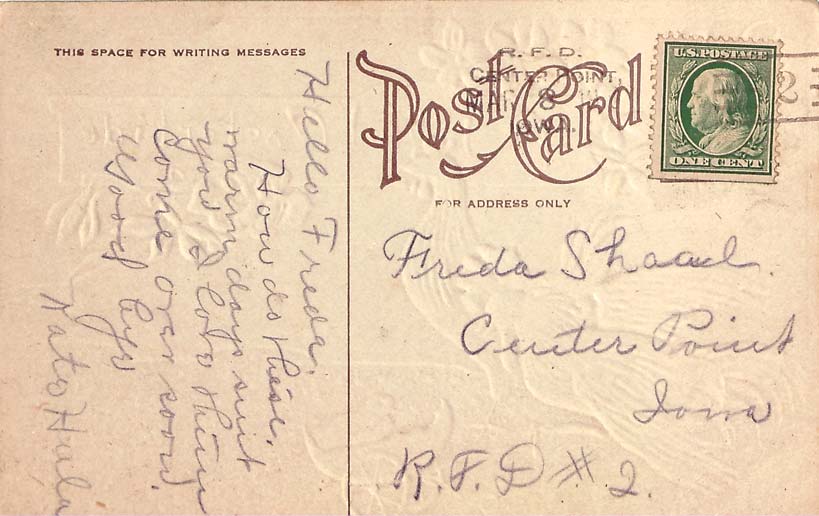 THIS SPACE FOR WRITING MESSAGES
Hello Freda,
How do these,
warm days suit
you I love them
Come over soon.
Good bye
Post Card
R. F. D.
CENTER POINT,
MAR 8
IOWA.
FOR ADDRESS ONLY
U.S. POSTAGE
ONE CENT
2
Freda
Center Point
Iowa
R.F.D # 2.